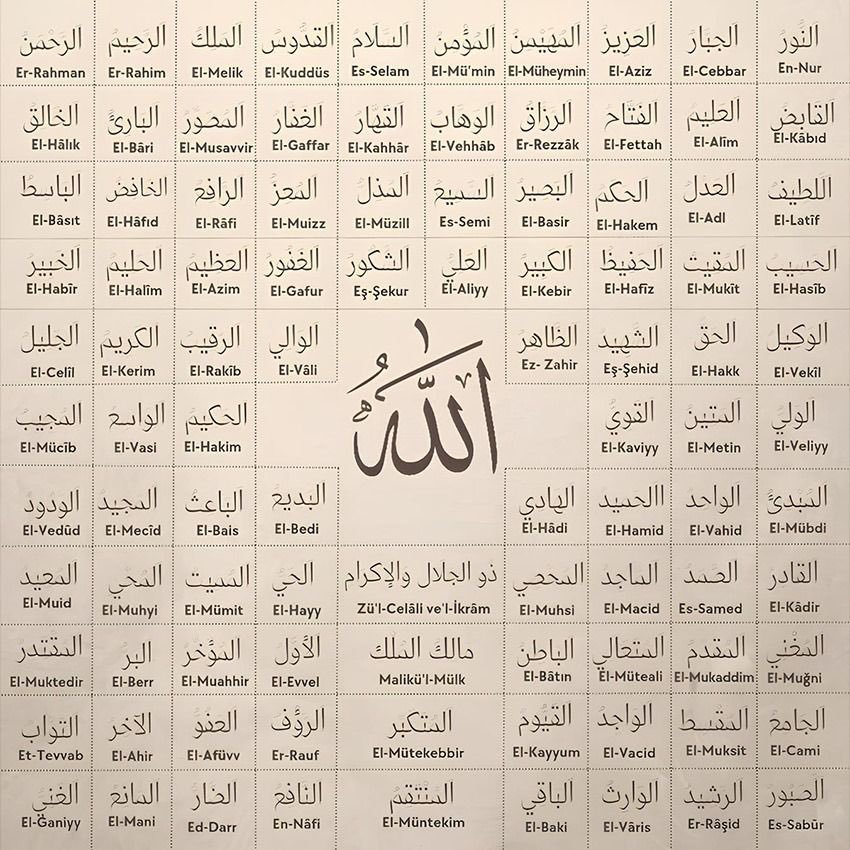 الرحمن الرحيم الملك القدوس السلام المؤمن المهيمن العزيز الجبار النور
Er-Rahman Er-Rahim El-Melik El-Kuddüs Es-Selam El-Mü'min El-Müheymin El-Aziz El-Cebbar En-Nur
الخالق البارئ المصور الغفار القهار الوهاب الرزاق الفتاح العليم القابض
El-Hâlık El-Bâri El-Musavvir El-Gaffar El-Kahhâr El-Vehhâb Er-Rezzâk El-Fettah El-Alîm El-Kâbıd
الباسط الخافض الرافع المعز المذل السميع البصير الحكم العدل اللطيف
El-Bâsıt El-Hâfıd El-Râfi El-Muizz El-Müzill Es-Semi El-Basir El-Hakem El-Adl El-Latîf
الخبير الحليم العظيم الغفور الشكور العلي الكبير الحفيظ المقيت الحسيب
El-Habîr El-Halîm El-Azim El-Gafur Eş-Şekur El-Aliyy El-Kebir El-Hafîz El-Mukît El-Hasîb
الجليل الكريم الرقيب الوالي الظاهر الشهيد الحق الوكيل
El-Celîl El-Kerim El-Rakîb El-Vâli Ez- Zahir Eş-Şehid El-Hakk El-Vekîl
الله
المجيب الواسع الحكيم القوي المتين الولي
El-Mücîb El-Vasi El-Hakim El-Kaviyy El-Metin El-Veliyy
الودود المجيد الباعث البديع الهادي االحميد الواحد المبدئ
El-Vedûd El-Mecîd El-Bais El-Bedi El-Hâdi El-Hamid El-Vahid El-Mübdi
المعيد المحي المميت الحي ذو الجلال والإكرام المحصي الماجد الصمد القادر
El-Muid El-Muhyi El-Mümit El-Hayy Zü'l-Celâli ve'l-İkrâm El-Muhsi El-Macid Es-Samed El-Kâdir
المقتدر البر المؤخر الأول مالك الملك الباطن المتعالي المقدم المغني
El-Muktedir El-Berr El-Muahhir El-Evvel Malikü'l-Mülk El-Bâtın El-Müteali El-Mukaddim El-Muğni
التواب الآخر العفو الرؤف المتكبر القيوم الواجد المقسط الجامع
Et-Tevvab El-Ahir El-Afüvv Er-Rauf El-Mütekebbir El-Kayyum El-Vacid El-Muksit El-Cami
الغني المانع الضار النافع المنتقم الباقي الوارث الرشيد الصبور
El-Ğaniyy El-Mani Ed-Darr En-Nâfi El-Müntekim El-Baki El-Vâris Er-Râşid Es-Sabûr